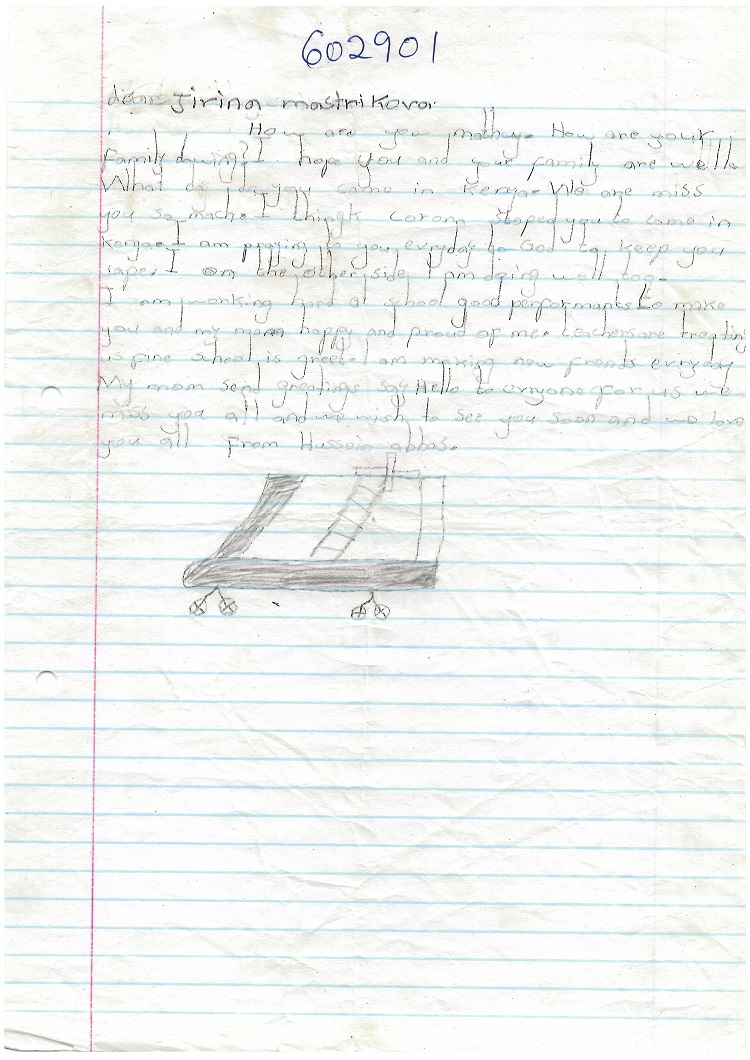 602901
dear Jirina mastrikova
How are you mathug. How are your
family dowing? I hope you and your family are well.
What do day you came in Kenya. We are miss
you so mach. I thingk corona stoped you to came in
kenya. I am praying to you everyday to God to keep you
sape. I on the other side I am doing well too.
I am working hard at school good performants to make
you and my mom happy and proud of me. teachers are treating
us fine school is greet I am making new friends everyday
My mom send greatings say Hello to eryone for us we
miss you all and we wish to see you soon and we love
you all From Hussein abbas.